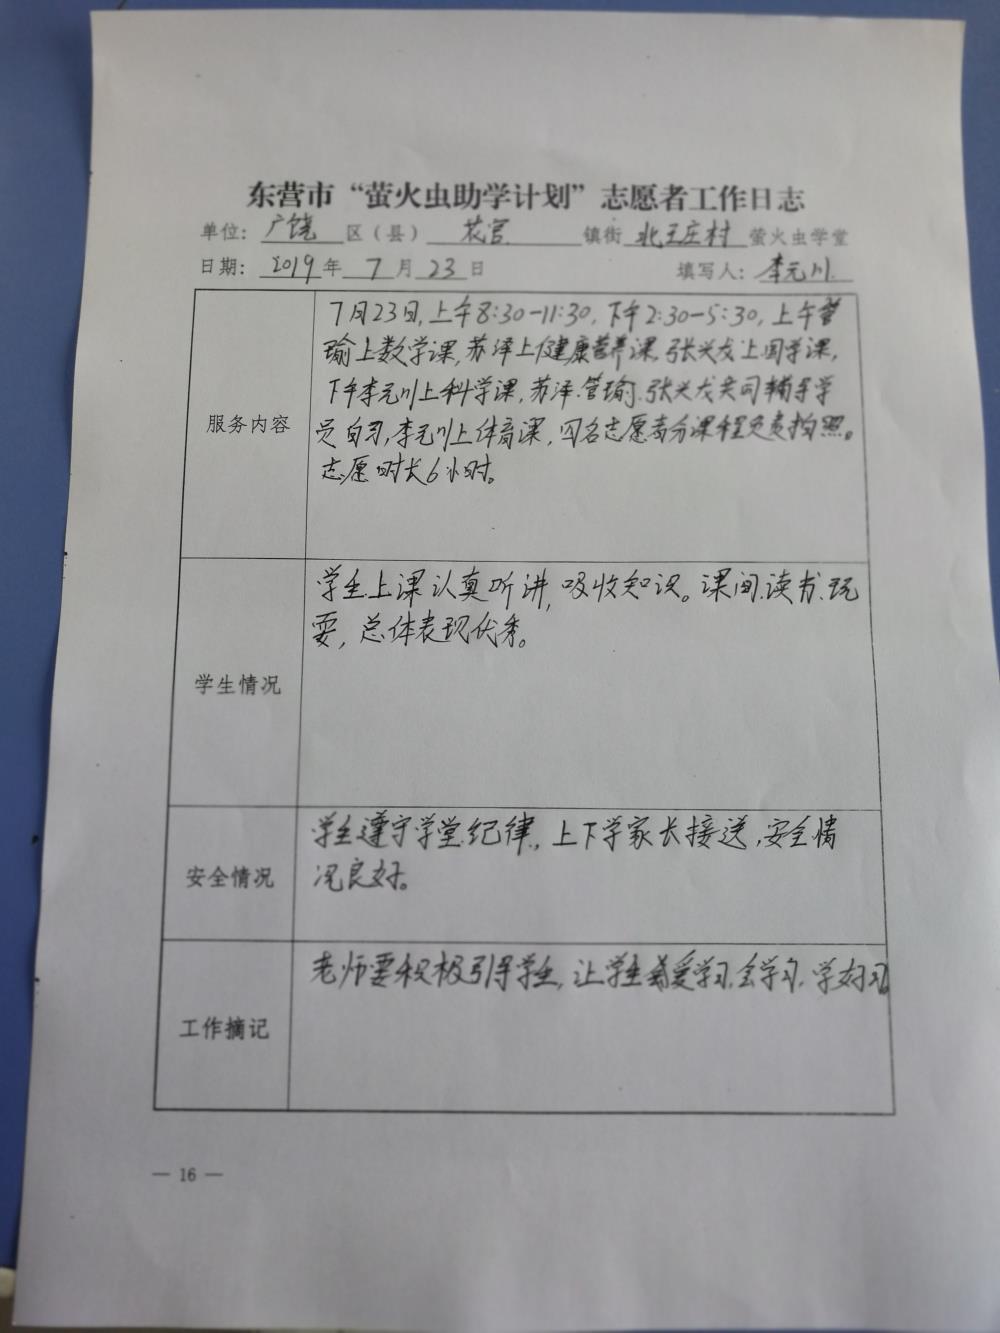 东营市“萤火虫助学计划”志愿者工作日志
单位：广饶区（县）花官镇街北王庄村萤火虫学堂
日期：2019年7月23日 填写人：李元川
服务内容
7月23日，上午8:30-11:30，下午2:30-5:30，上午管
瑜上数学课，苏泽上健康营养课，张兴龙上国学课，
下午李元川上科学课，苏泽、管瑜、张兴龙共同辅导学
员自习，李元川上体育课，四名志愿者分课程负责拍照。
志愿时长6小时。
学生情况
学生上课认真听讲，吸收知识。课间读书、玩
耍，总体表现优秀。
安全情况
学生遵守学堂纪律，上下学家长接送，安全情
况良好。
工作摘记
老师要积极引导学生，让学生爱学习，会学习，学好习
— 16 —